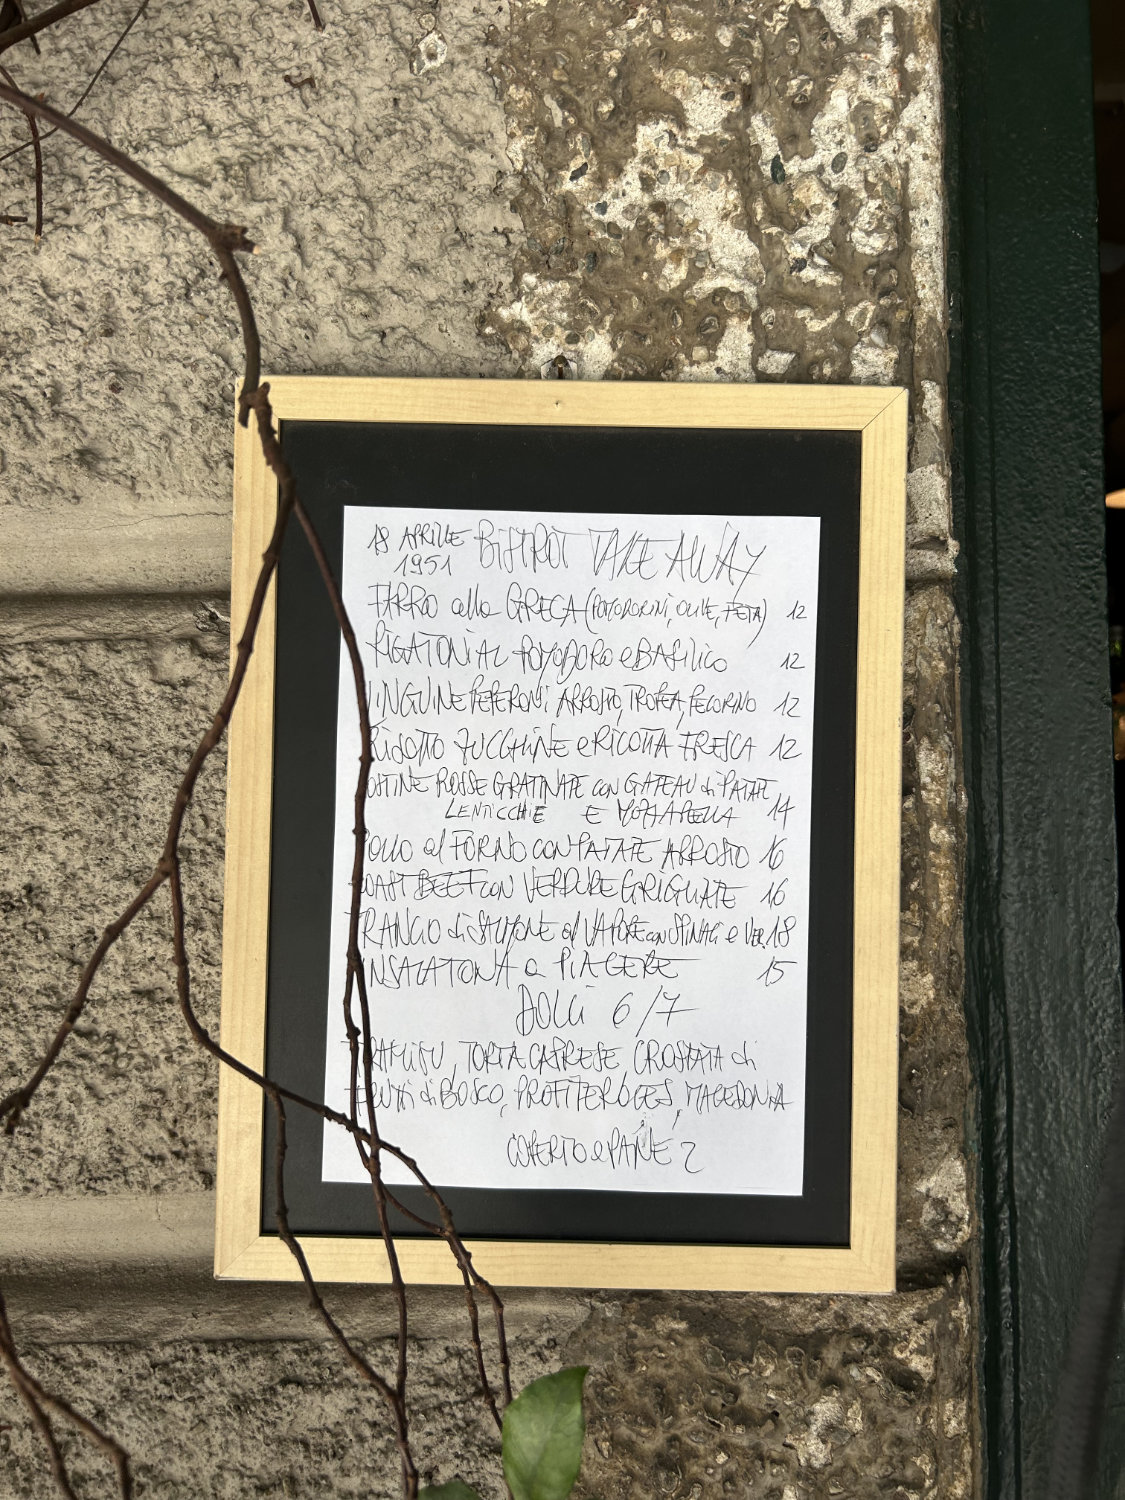 18 APRILE BISTROT TAKE AWAY
1951
FARRO alla GRECA (POMODORINI, OLIVE, FETA) 12
RIGATONI AL POMODORO e BASILICO 12
LINGUINE PEPERONI ARROSTO, TROPEA, PECORINO 12
RISOTTO ZUCCHINE e RICOTTA FRESCA 12
COSTINE ROSSE GRATINATE con GATEAU di PATATE
LENTICCHIE E MOZZARELLA 14
POLLO al FORNO con PATATE ARROSTO 16
ROAST BEEF con VERDURE GRIGLIATE 16
TRANCIO di SALMONE al VAPORE con SPINACI e VER. 18
INSALATONA a PIACERE 15
DOLCI 6/7
TIRAMISU, TORTA CAPRESE CROSTATA di
FRUTTI di BOSCO, PROFITEROLES, MACEDONIA
COPERTO e PANE 2